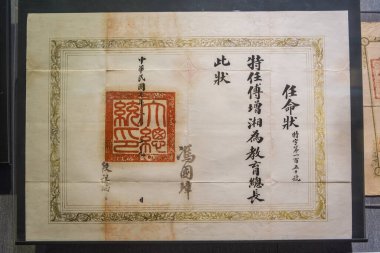 任命狀
特字第一百五十號
特任傅增湘為教育總長
此狀
馮國璋
大總統印
中華民國